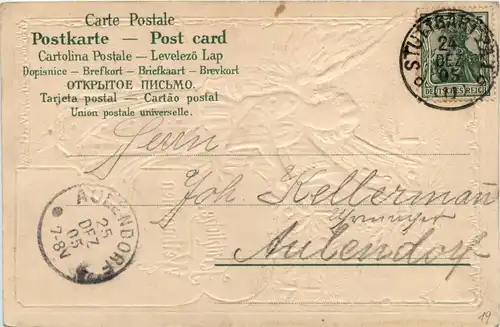 Carte Postale
Postkarte — Post card
Cartolina Postale — Levelező Lap
Dopisnice — Brefkort — Briefkaart — Brevkort
ОТКРЫТОЕ ПИСЬМО.
Tarjeta postal — Cartão postal
Union postale universelle.
STUTTGART
24
DEZ
05
DEUTSCHES REICH
Herrn
Joh Kellerman
Aulendorf
AULENDORF
25
DEZ
05
7-8V
19